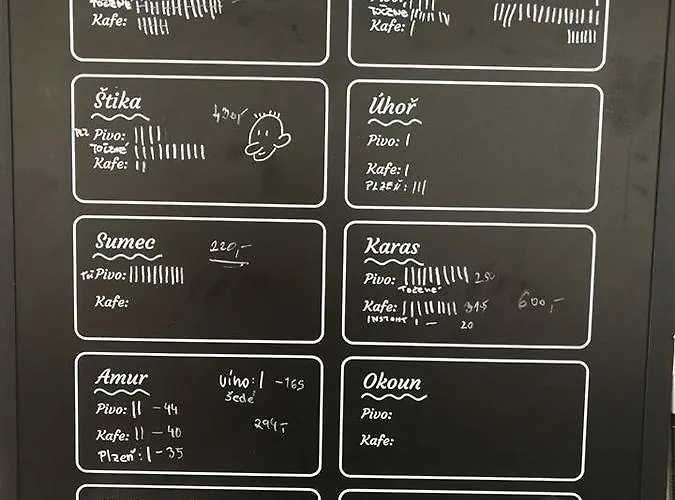 TOČENÉ
Kafe:
TOČENÉ
Kafe:
Štika
Pivo: ||||
TOČENÉ
Kafe: ||
Úhoř
Pivo: |
Kafe: |
PLZEŇ: |||
Sumec 220,-
Pivo:
Kafe:
Karas
Pivo:
TOČENÉ
Kafe: 315 600,-
INSTANT | - 20
Amur víno: | -165
šedé
Pivo: || - 44
294,-
Kafe: || - 40
Plzeň: | - 35
Okoun
Pivo:
Kafe: